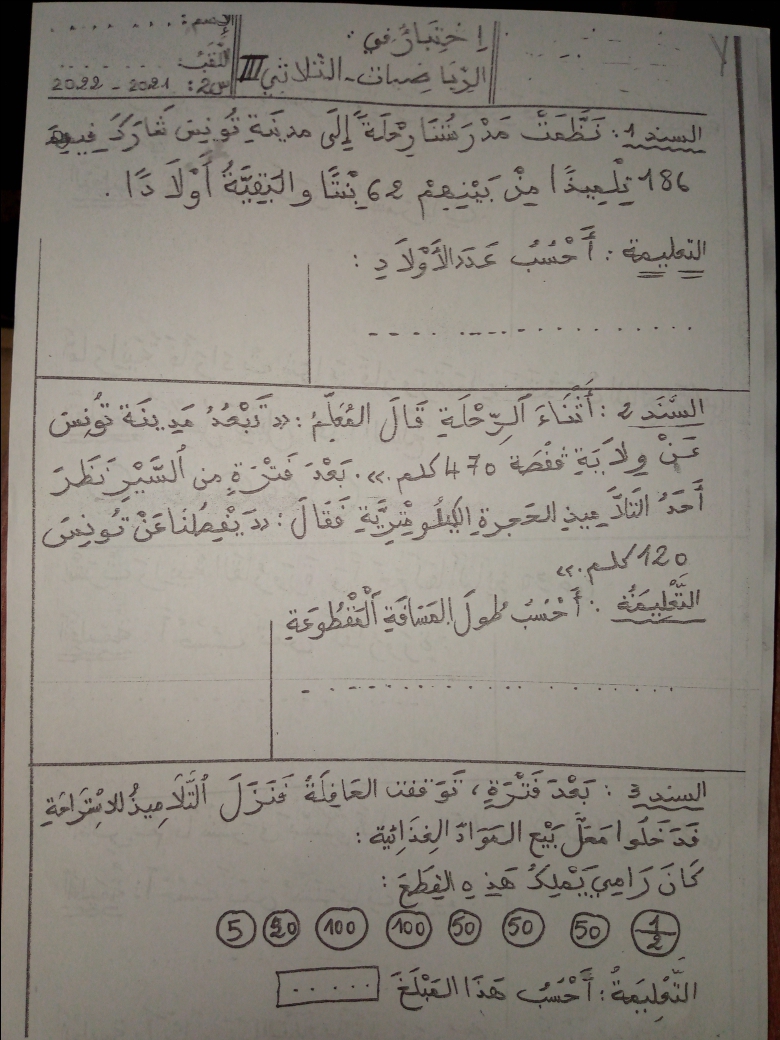 إِخْتِبَارٌ في :
الرِّيَاضِيات - الثلاثي III
الإسم : . . . . . .
اللّقب : . . . . . .
س2 : 2021 - 2022
السند 1 : نَظَّمَتْ مَدْرَسَتُنَا رِحْلَةً إِلَى مدينَةِ تُونِسَ شَارَكَ فيها
186 تِلْمِيذًا مِنْ بَيْنِهِمْ 62 بِنْتًا والبَقِيَّةُ أَوْلاَدًا .
التعليمة : أَحْسُبُ عَدَدَ الأَوْلاَدِ :
. . . . . . . . . . . . . . . .
السَّنَد 2 : أَثْنَاءَ الرِّحْلَةِ قَالَ المُعَلِّمُ : « تَبْعُدُ مَدِينَة تُونِسَ
عَنْ وِلاَيَةِ قَفْصَة 470 كلم ». بَعْدَ فَتْرَةٍ مِن السَّيْرِ نَظَرَ
أَحَدُ التَلاَمِيذِ الحَجرةِ الكِيلُومِتْرِيَّةِ فَقَالَ : « يَفْصِلُنَا عَنْ تُونِسَ
120 كلم ».
التَّعْلِيمَةُ : أَحْسُبُ طُولَ المَسَافَةِ الْمَقْطُوعَةِ
. . . . . . . . . . . . . . . .
السند 3 : بَعْدَ فَتْرَةٍ ، تَوَقفت الحَافِلَةُ فَنَزَلَ التَّلاَمِيذُ للاِسْتِرَاحَةِ
فَدَخَلُوا مَحَلَّ بَيْعِ المَوَادِّ الغِذَائِية :
كَانَ رَامِي يَمْلِكُ هَذِهِ القِطَعَ :
1/2 50 50 50 100 100 20 5
التَّعْلِيمَةُ : أَحْسُبُ هَذَا المَبْلَغَ . . . . .